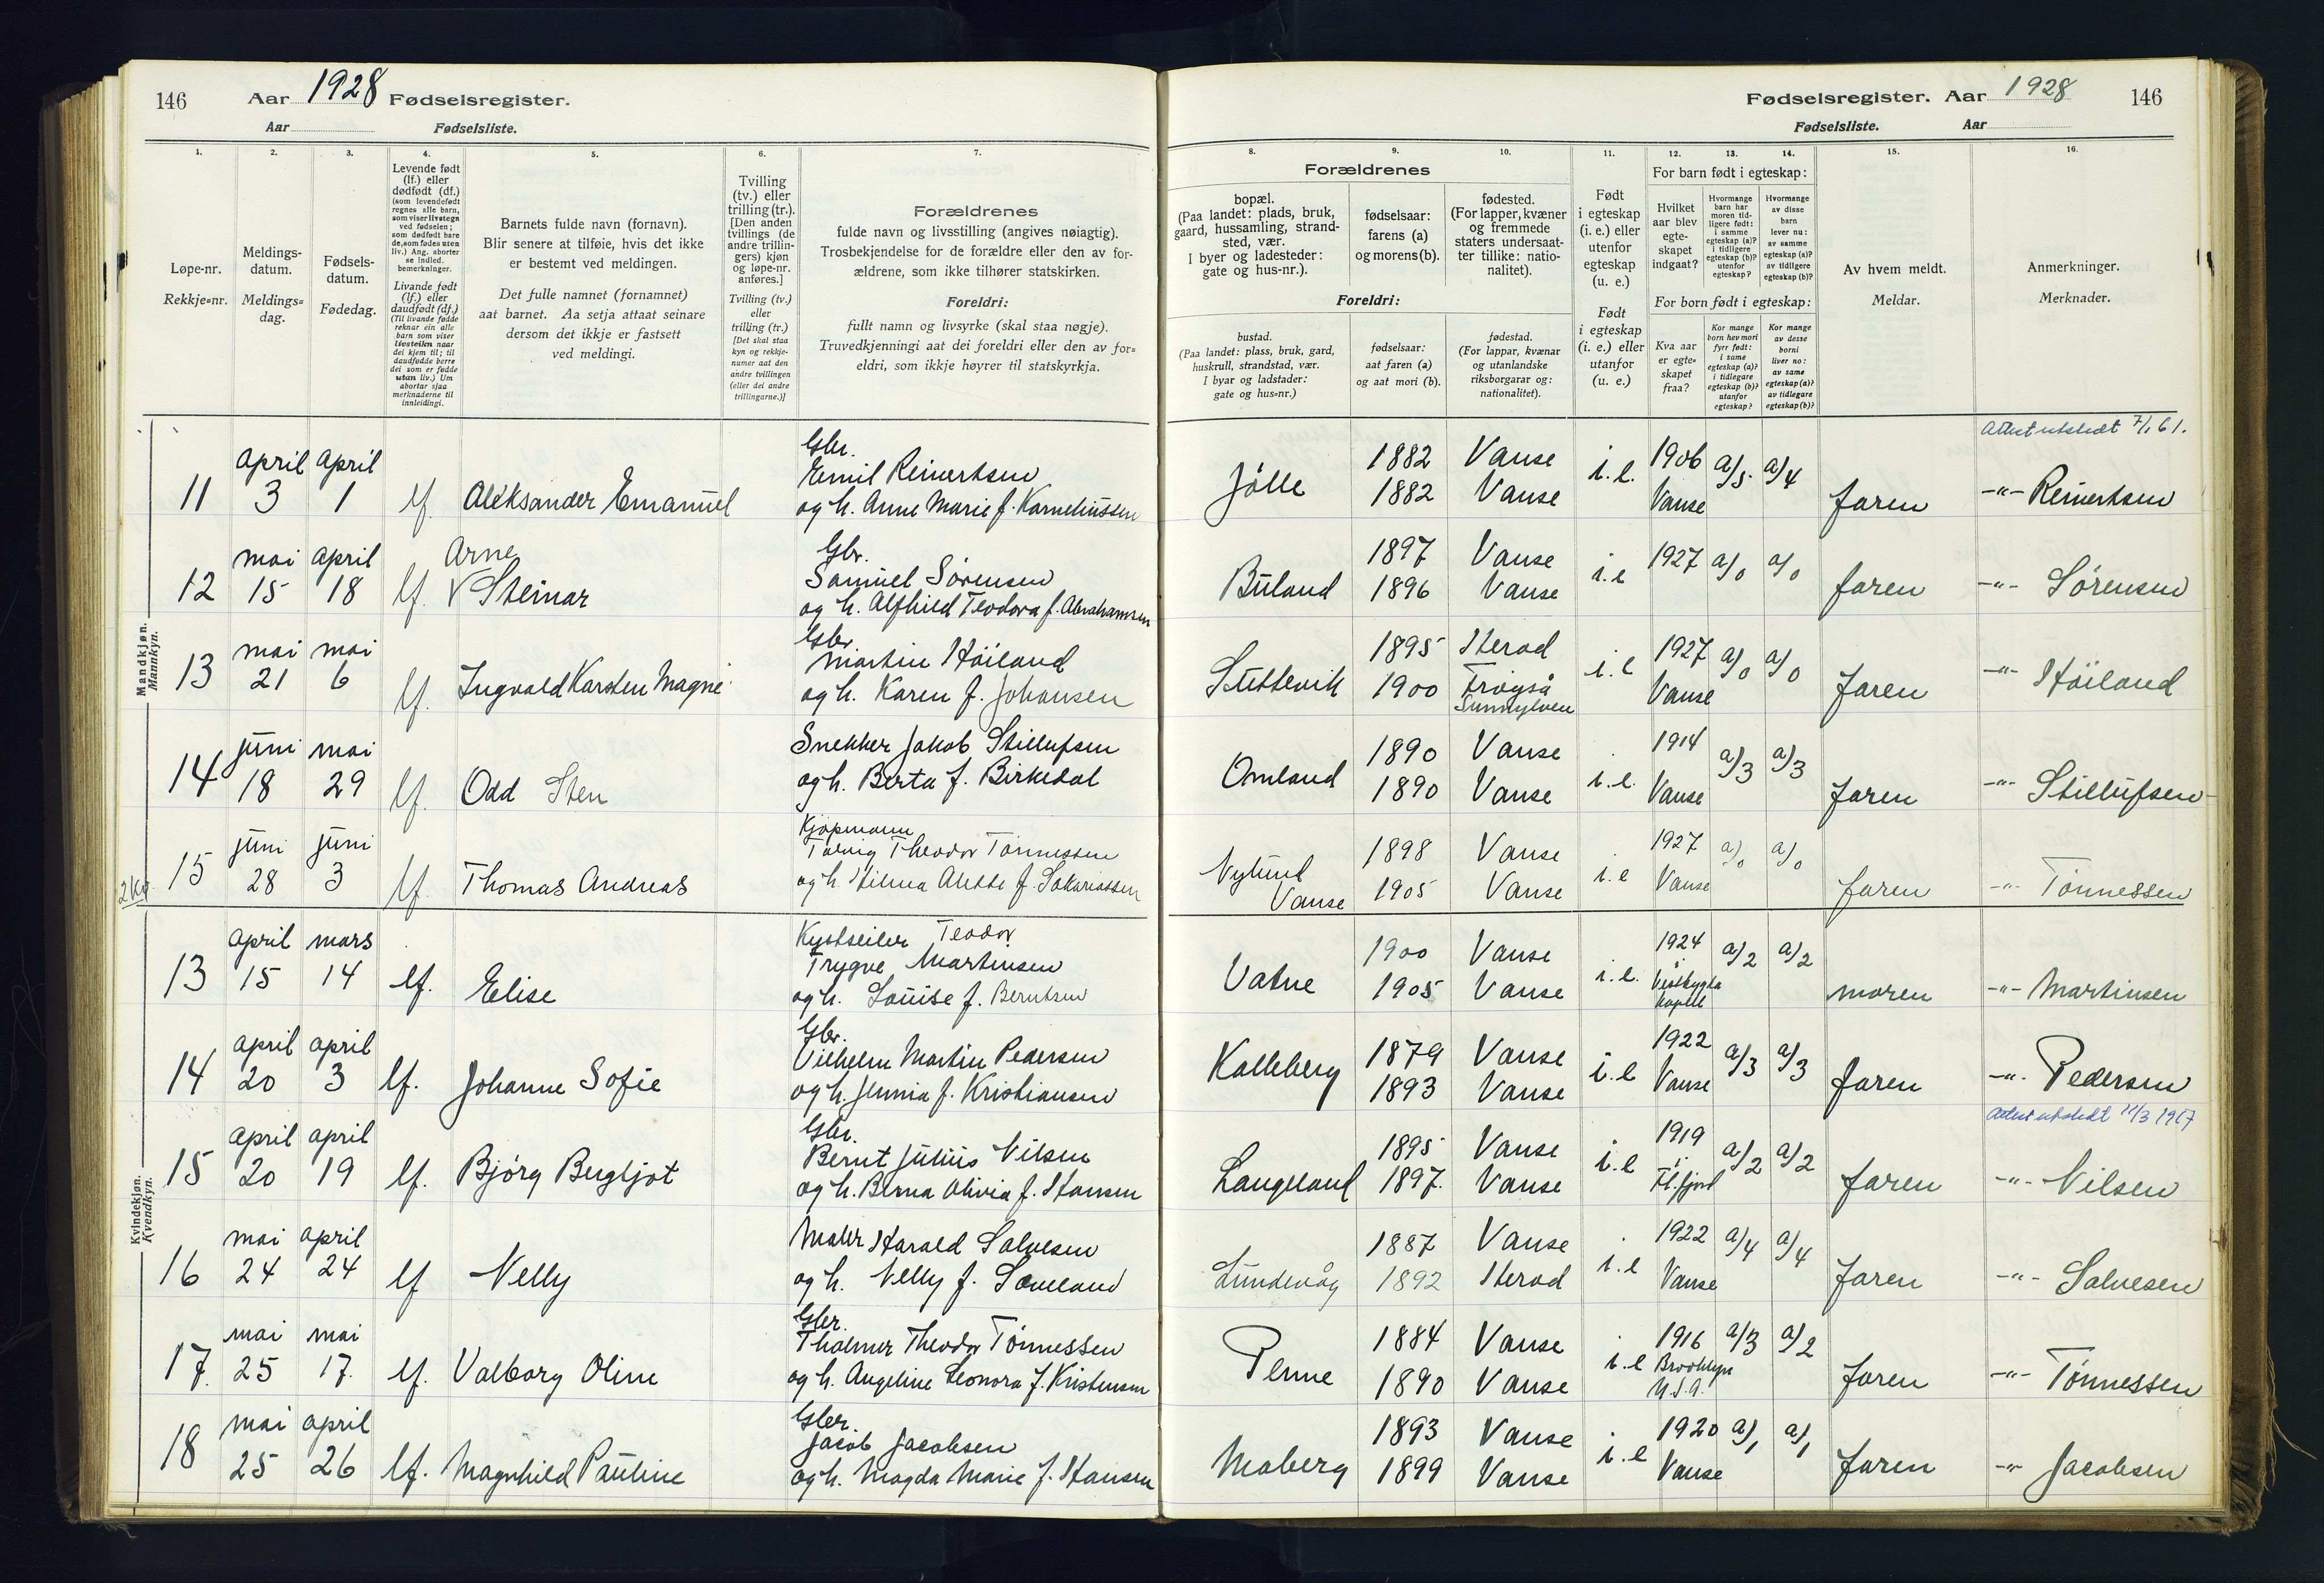 146 Aar 1928 Fødselsregister.
Aar Fødselsliste.
Fødselsregister. Aar 1928 146
Fødselsliste. Aar
1. 2. 3. 4. 5. 6. 7.
Løpe-nr.
Rekkje=nr.
Meldings-
datum.
Meldings=
dag.
Fødsels-
datum.
Fødedag.
Levende født
(lf.) eller
dødfødt (df.)
(som levendefødt
regnes alle barn,
som viser livstegn
ved fødselen;
som dødfødt bare
de, som fødes uten
liv.) Ang. aborter
se indled.
bemerkninger.
Livande født
(lf.) eller
daudfødt (df.)
(Til livande fødde
reknar ein alle
barn som viser
livsteikn naar
dei kjem til; til
daudfødde berre
dei som er fødde
utan liv.) Um
abortar sjaa
merknaderne til
innleidingi.
Barnets fulde navn (fornavn).
Blir senere at tilføie, hvis det ikke
er bestemt ved meldingen.
Det fulle namnet (fornamnet)
aat barnet. Aa setja attaat seinare
dersom det ikkje er fastsett
ved meldingi.
Tvilling
(tv.) eller
trilling (tr.).
[Den anden
tvillings (de
andre trillin-
gers) kjøn
og løpe-nr.
anføres.]
Tvilling (tv.)
eller
trilling (tr.)
[Det skal staa
kyn og rekkje-
numer aat den
andre tvillingen
(eller dei andre
trillingarne.)]
Forældrenes
fulde navn og livsstilling (angives nøiagtig).
Trosbekjendelse for de forældre eller den av for-
ældrene, som ikke tilhører statskirken.
Foreldri:
fullt namn og livsyrke (skal staa nøgje).
Truvedkjenningi aat dei foreldri eller den av for=
eldri, som ikkje høyrer til statskyrkja.
8. 9. 10. 11. 12. 13. 14. 15. 16.
Forældrenes
bopæl.
(Paa landet: plads, bruk,
gaard, hussamling, strand-
sted, vær.
I byer og ladesteder:
gate og hus-nr.).
fødselsaar:
farens (a)
og morens (b).
fødested.
(For lapper, kvæner
og fremmede
staters undersaat-
ter tillike: natio-
nalitet).
Foreldri:
bustad.
(Paa landet: plass, bruk, gard,
huskrull, strandstad, vær.
I byar og ladstader:
gate og hus=nr.)
fødselsaar:
aat faren (a)
og aat mori (b).
fødestad.
(For lappar, kvænar
og utanlandske
riksborgarar og:
nationalitet).
Født
i egteskap
(i. e.) eller
utenfor
egteskap
(u. e.)
Født
i egteskap
(i. e.) eller
utanfor
(u. e.)
For barn født i egteskap:
Hvilket
aar blev
egte-
skapet
indgaat?
Hvormange
barn har
moren tid-
ligere født:
i samme
egteskap (a)?
i tidligere
egteskap (b)?
utenfor
egteskap?
Hvormange
av disse
barn
lever nu:
av samme
egteskap (a)?
av tidligere
egteskap (b)?
For born født i egteskap:
Kva aar
er egte=
skapet
fraa?
Kor mange
born hev mori
fyrr født:
i same
egteskap (a)?
i tidlegare
egteskap (b)?
utanfor
egteskap?
Kor mange
av desse
borni
liver no:
av same
egteskap (a)?
av tidlegare
egteskap (b)?
Av hvem meldt.
Meldar.
Anmerkninger.
Merknader.
Mandkjøn.
Mannkyn.
Attest utstedt 7/1 61.
11 april 3 april 1 lf. Aleksander Emanuel
Gbr.
Emil Reinertsen
og h. Anne Marie f. Korneliussen
Jølle 1882 1882 Vanse Vanse i.e. 1906 Vanse a/5 a/4 faren -"- Reinertsen
12 mai 15 april 18 lf. Arne
V Steinar
Gbr.
Samuel Sörensen
og h. Alfhild Teodora f. Abrahamsen
Büland 1897 1896 Vanse Vanse i.e 1927 a/0 a/0 faren -"- Sørensen
13 mai 21 mai 6 lf. Ingvald Karsten Magne
Gbr
Martin Höiland
og h. Karen f. Johansen
Stüttevik 1895 1900 Herad
Sunnylven i.e 1927 Vanse a/0 a/0 faren -"- Höiland
14 jüni 18 mai 29 lf. Odd Sten
Snekker Jakob Stillufsen
og h. Berta f. Birkedal
Omland 1890 1890 Vanse Vanse i.e. 1914 Vanse a/3 a/3 faren -"- Stillüfsen
2 Kv.
15 jüni 28 jüni 3 lf Thomas Andreas
Kjøpmann
Theodor Tönnessen
og h. Hilma Alette f. Sakariassen
Nylund
Vanse 1898 1905 Vanse Vanse i.e 1927 Vanse a/0 a/0 faren -"- Tönnessen
Kvindekjøn.
Kvendkyn.
13 april 15 mars 14 lf. Elise
Kystseiler Teodor
Trygve Martinsen
og h. Louise f. Berntsen
Vatne 1900 1905 Vanse Vanse i.e. 1924 i Vestbygda kapell a/2 a/2 moren -"- Martinsen
14 april 20 april 3 lf. Johanne Sofie
Gbr.
Vilhelm Martin Pedersen
og h. Jennia f. Kristiansen
Kalleberg 1879 1893 Vanse Vanse i.e 1922 Vanse a/3 a/3 faren -"- Pedersen
Attest utstedt 11/3 1967
15 april 20 april 19 lf. Bjórg Bergljot
Gbr.
Bernt Jülius Nilsen
og h. Berna Olivia f. Hansen
Langeland 1895 1897. Vanse Vanse i.e 1919 i Fl.fjord a/2 a/2 faren -"- Nilsen
16 mai 24 april 24 lf Nelly
Maler Harald Salvesen
og h. Nelly f. Løveland
Lundevåg 1887 1892 Vanse Herad i.e 1922 Vanse a/4 a/4 faren -"- Salvesen
17. mai 25 mai 17. lf. Valborg Oline
Gbr.
Tholmer Theodor Tönnessen
og h. Angeline Leonora f. Kristensen
Penne 1884 1890 Vanse Vanse i.e 1916 Brooklyn U.S.A. a/3 a/2 faren -"- Tønnessen
18 mai 25 april 26 lf. Magnhild Pauline
Gbr.
Jacob Jacobsen
og h. Magda Marie f. Hansen
Moberg 1893 1899 Vanse Vanse i.e 1920 Vanse a/1 a/1 faren -"- Jacobsen